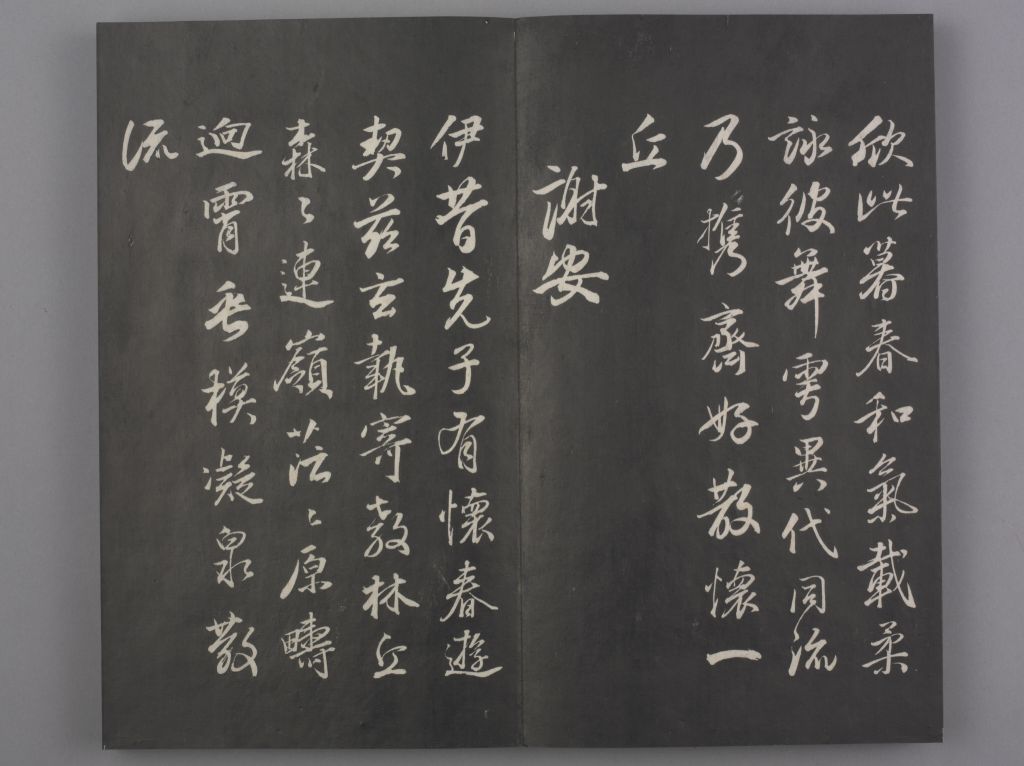 欣此暮春和氣載柔
詠彼舞雩異代同流
乃携齊好散懷一
丘
謝安
伊昔先子有懷春遊
契茲玄執寄敖林丘
森〻連嶺茫〻原疇
逈霄垂模凝泉散
流